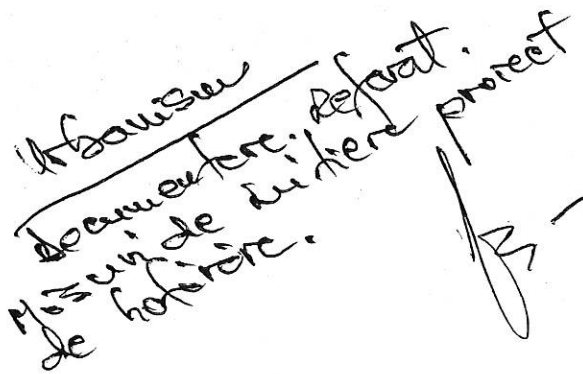 Urbanism
Documentare. Referat.
Măsuri de inițiere proiect
de hotărâre.